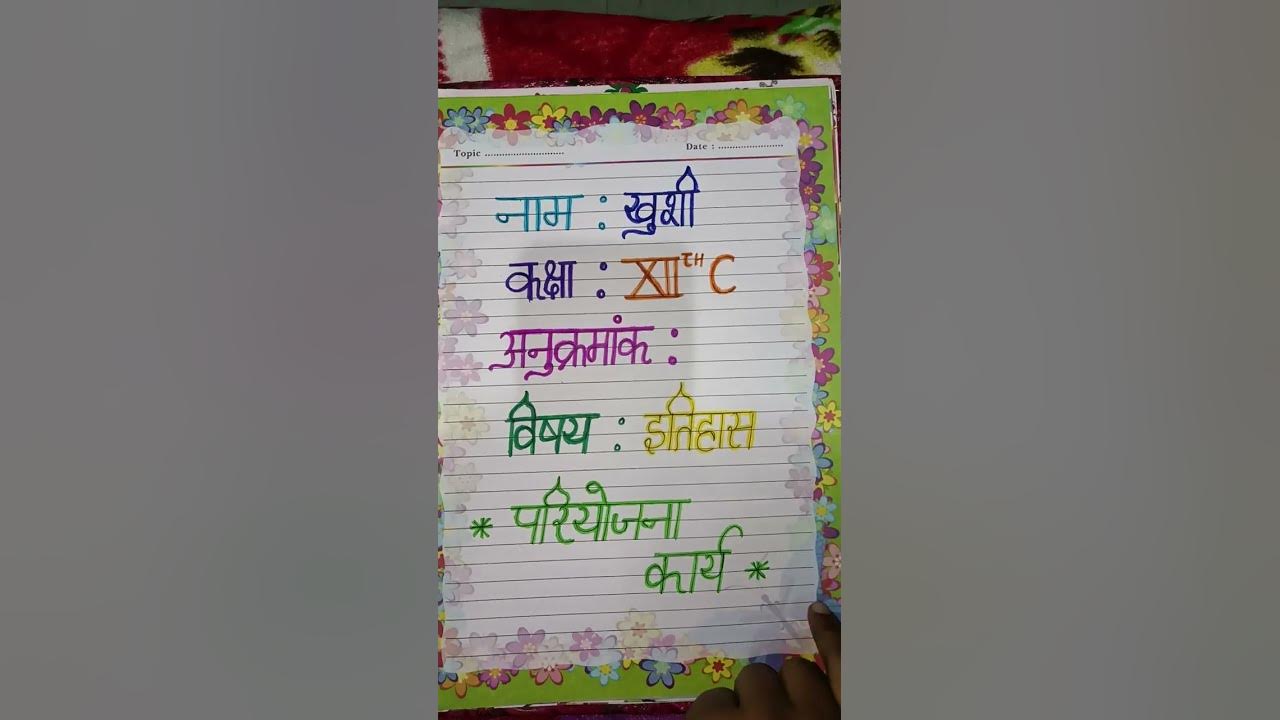 Topic ............................
Date : .......................
नाम : खुशी
कक्षा : XIITH C
अनुक्रमांक :
विषय : इतिहास
* परियोजना
कार्य *